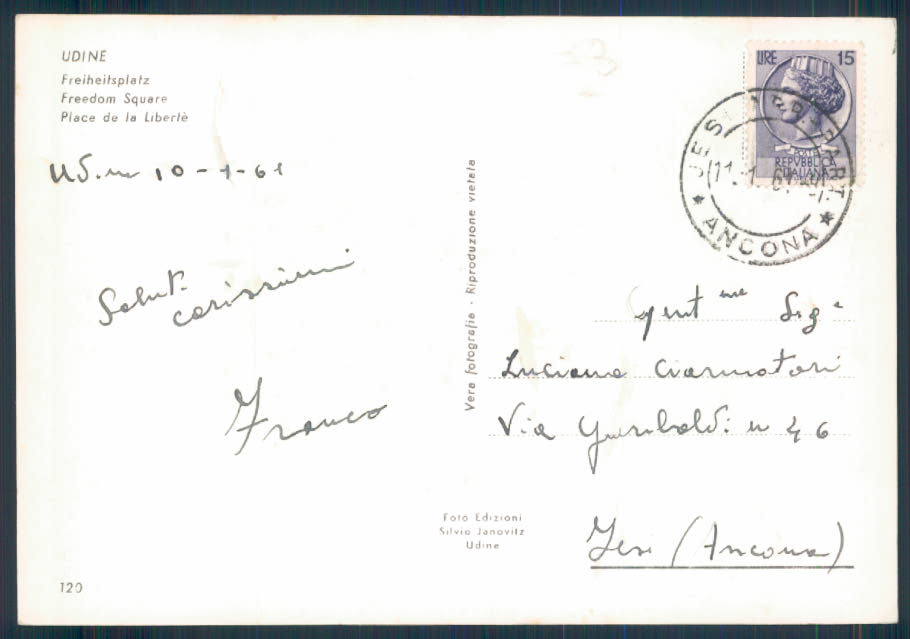 UDINE
Freiheitsplatz
Freedom Square
Place de la Libertè
Udine 10-1-61
Saluti
carissimi
Franco
Vera fotografia - Riproduzione vietata
Foto Edizioni
Silvio Janovitz
Udine
120
LIRE 15
POSTE
REPVBBLICA
ITALIANA
JESI ARR. PART.
11.1.61
* ANCONA *
Gent me Sig a
Luciana Ciarmatori
Via Garibaldi n 46
Jesi (Ancona)